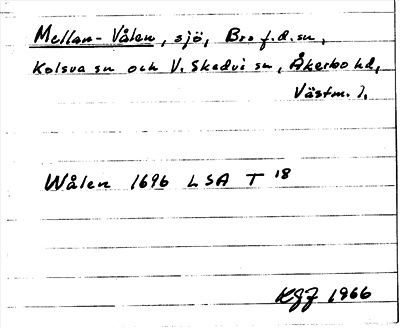 Mellan-Vålen, sjö, Bro f.d. sn,
Kolsva sn och V. Skedvi sn, Åkerbo hd,
Västm. l,
Wålen 1696 LSA T 18
KGJ 1966